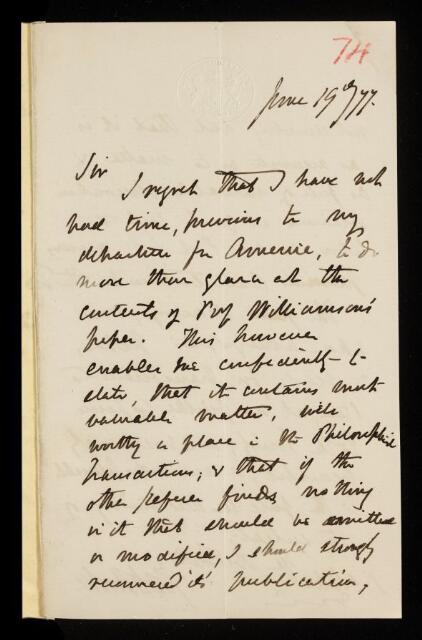 74
June 19th/77.
Sir
I regret that I have not
had time, previous to my
departure for America, to do
more than glance at the
contents of Prof Williamson's
paper. This however
enables me confidently to
state, that it contains much
valuable matter, well
worthy a place in the Philosophical
Transactions; & that if the
other referee finds nothing
in it that should be omitted
or modified, I should strongly
recommend its publication,